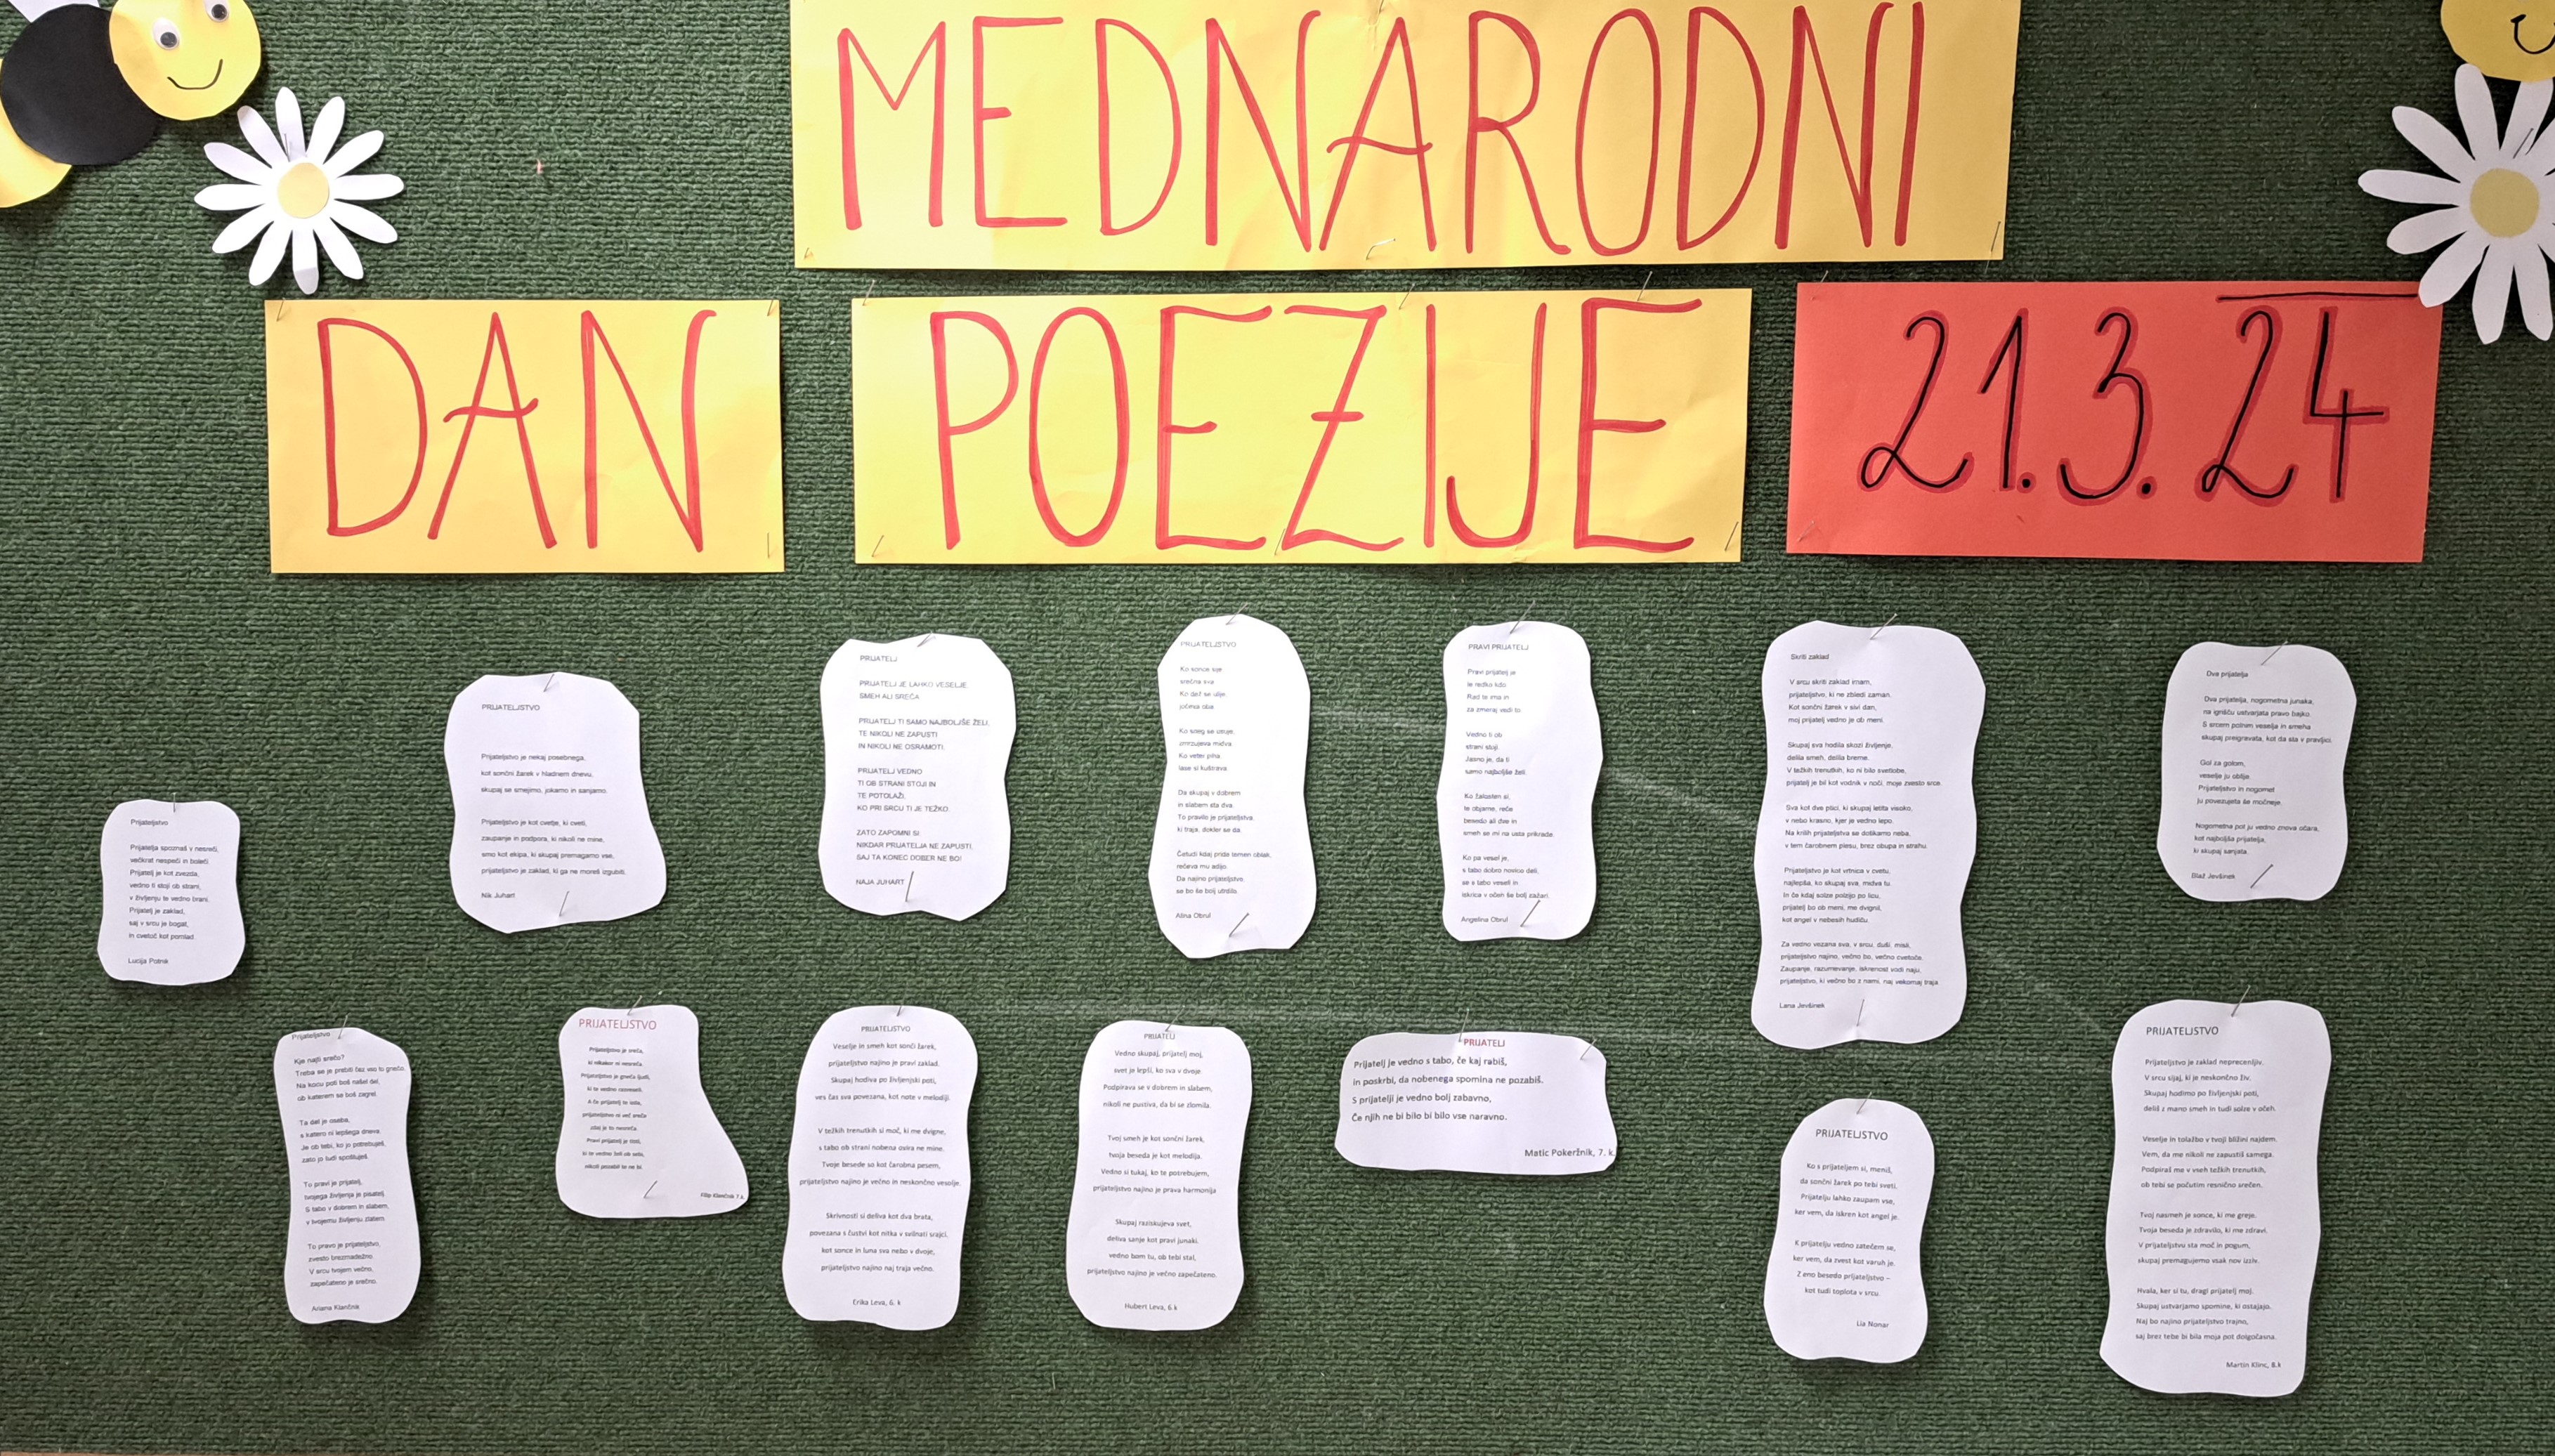 MEDNARODNI
DAN POEZIJE 21.3.24
Prijateljstvo
Prijatelja spoznaš v nesreči,
večkrat nespeči in boleči.
Prijatelj je kot zvezda,
vedno ti stoji ob strani,
v življenju te vedno brani.
Prijatelj je zaklad,
saj v srcu je bogat,
in cvetoč kot pomlad.
Lucija Potnik
PRIJATELJSTVO
Prijateljstvo je nekaj posebnega,
kot sončni žarek v hladnem dnevu,
skupaj se smejimo, jokamo in sanjamo.
Prijateljstvo je kot cvetje, ki cveti,
zaupanje in podpora, ki nikoli ne mine,
smo kot ekipa, ki skupaj premagamo vse,
prijateljstvo je zaklad, ki ga ne moreš izgubiti.
Nik Juhart
PRIJATELJ
PRIJATELJ JE LAHKO VESELJE,
SMEH ALI SREČA.
PRIJATELJ TI SAMO NAJBOLJŠE ŽELI,
TE NIKOLI NE ZAPUSTI
IN NIKOLI NE OSRAMOTI.
PRIJATELJ VEDNO
TI OB STRANI STOJI IN
TE POTOLAŽI,
KO PRI SRCU TI JE TEŽKO.
ZATO ZAPOMNI SI:
NIKDAR PRIJATELJA NE ZAPUSTI,
SAJ TA KONEC DOBER NE BO!
NAJA JUHART
PRIJATELJSTVO
Ko sonce sije
srečna sva.
Ko dež se ulije,
jočeva oba.
Ko sneg se usuje,
zmrzujeva midva.
Ko veter piha
lase si kuštrava.
Da skupaj v dobrem
in slabem sta dva.
To pravilo je prijateljstva,
ki traja, dokler se da.
Četudi kdaj pride temen oblak,
rečeva mu adijo.
Da najino prijateljstvo,
se bo še bolj utrdilo.
Alina Obrul
PRAVI PRIJATELJ
Pravi prijatelj je
le redko kdo.
Rad te ima in
za zmeraj vedi to.
Vedno ti ob
strani stoji.
Jasno je, da ti
samo najboljše želi.
Ko žalosten si,
te objame, reče
besedo ali dve in
smeh se mi na usta prikrade.
Ko pa vesel je,
s tabo dobro novico deli,
se s tabo veseli in
iskrica v očeh še bolj zažari.
Angelina Obrul
Skriti zaklad
V srcu skriti zaklad imam,
prijateljstvo, ki ne zbledi zaman.
Kot sončni žarek v sivi dan,
moj prijatelj vedno je ob meni.
Skupaj sva hodila skozi življenje,
delila smeh, delila breme.
V težkih trenutkih, ko ni bilo svetlobe,
prijatelj je bil kot vodnik v noči, moje zvesto srce.
Sva kot dve ptici, ki skupaj letita visoko,
v nebo krasno, kjer je vedno lepo.
Na krilih prijateljstva se dotikamo neba,
v tem čarobnem plesu, brez obupa in strahu.
Prijateljstvo je kot vrtnica v cvetu,
najlepša, ko skupaj sva, midva tu.
In če kdaj solze polzijo po licu,
prijatelj bo ob meni, me dvignil,
kot angel v nebesih hudiču.
Za vedno vezana sva, v srcu, duši, misli,
prijateljstvo najino, večno bo, večno cvetoče.
Zaupanje, razumevanje, iskrenost vodi naju,
prijateljstvo, ki večno bo z nami, naj vekomaj traja.
Lana Jevšinek
Dva prijatelja
Dva prijatelja, nogometna junaka,
na igrišču ustvarjata pravo bajko.
S srcem polnim veselja in smeha
skupaj preigravata, kot da sta v pravljici.
Gol za golom,
veselje ju oblije.
Prijateljstvo in nogomet
ju povezujeta še močneje.
Nogometna pot ju vedno znova očara,
kot najboljša prijatelja,
ki skupaj sanjata.
Blaž Jevšinek
Prijateljstvo
Kje najti srečo?
Treba se je prebiti čez vso to gnečo.
Na kocu poti boš našel del,
ob katerem se boš zagrel.
Ta del je oseba,
s katero ni lepšega dneva.
Je ob tebi, ko jo potrebuješ,
zato jo tudi spoštuješ.
To pravi je prijatelj,
tvojega življenja je pisatelj.
S tabo v dobrem in slabem,
v tvojemu življenju zlatem.
To pravo je prijateljstvo,
zvesto brezmadežno.
V srcu tvojem večno,
zapečateno je srečno.
Ariana Klančnik
PRIJATELJSTVO
Prijateljstvo je sreča,
ki nikakor ni nesreča.
Prijateljstvo je gneča ljudi,
ki te vedno razveseli.
A če prijatelj te ista,
prijateljstvo ni več sreča
zdaj je to nesreča.
Pravi prijatelj je tisti,
ki te vedno želi ob sebi,
nikoli pozabil te ne bi.
Filip Klančnik 7.k
PRIJATELJSTVO
Veselje in smeh kot sonči žarek,
prijateljstvo najino je pravi zaklad.
Skupaj hodiva po življenjski poti,
ves čas sva povezana, kot note v melodiji.
V težkih trenutkih si moč, ki me dvigne,
s tabo ob strani nobena ovira ne mine.
Tvoje besede so kot čarobna pesem,
prijateljstvo najino je večno in neskončno veselje.
Skrivnosti si deliva kot dva brata,
povezana s čustvi kot nitka v svilnati srajci,
kot sonce in luna sva nebo v dvoje,
prijateljstvo najino naj traja večno.
Erika Leva, 6. k
PRIJATELJ
Vedno skupaj, prijatelj moj,
svet je lepši, ko sva v dvoje.
Podpirava se v dobrem in slabem,
nikoli ne pustiva, da bi se zlomila.
Tvoj smeh je kot sončni žarek,
tvoja beseda je kot melodija.
Vedno si tukaj, ko te potrebujem,
prijateljstvo najino je prava harmonija
Skupaj raziskujeva svet,
deliva sanje kot pravi junaki.
vedno bom tu, ob tebi stal,
prijateljstvo najino je večno zapečateno.
Hubert Leva, 6.k
PRIJATELJ
Prijatelj je vedno s tabo, če kaj rabiš,
in poskrbi, da nobenega spomina ne pozabiš.
S prijatelji je vedno bolj zabavno,
Če njih ne bi bilo bi bilo vse naravno.
Matic Pokeržnik, 7. k.
PRIJATELJSTVO
Ko s prijateljem si, meniš,
da sončni žarek po tebi sveti.
Prijatelju lahko zaupam vse,
ker vem, da iskren kot angel je.
K prijatelju vedno zatečem se,
ker vem, da zvest kot varuh je.
Z eno besedo prijateljstvo –
kot tudi toplota v srcu.
Lia Nonar
PRIJATELJSTVO
Prijateljstvo je zaklad neprecenljiv.
V srcu sijaj, ki je neskončno živ.
Skupaj hodimo po življenjski poti,
deliš z mano smeh in tudi solze v očeh.
Veselje in tolažbo v tvoji bližini najdem.
Vem, da me nikoli ne zapustiš samega.
Podpiraš me v vseh težkih trenutkih,
ob tebi se počutim resnično srečen.
Tvoj nasmeh je sonce, ki me greje.
Tvoja beseda je zdravilo, ki me zdravi.
V prijateljstvu sta moč in pogum,
skupaj premagujemo vsak nov izziv.
Hvala, ker si tu, dragi prijatelj moj.
Skupaj ustvarjamo spomine, ki ostajajo.
Naj bo najino prijateljstvo trajno,
saj brez tebe bi bila moja pot dolgočasna.
Martin Klinc, 8.k